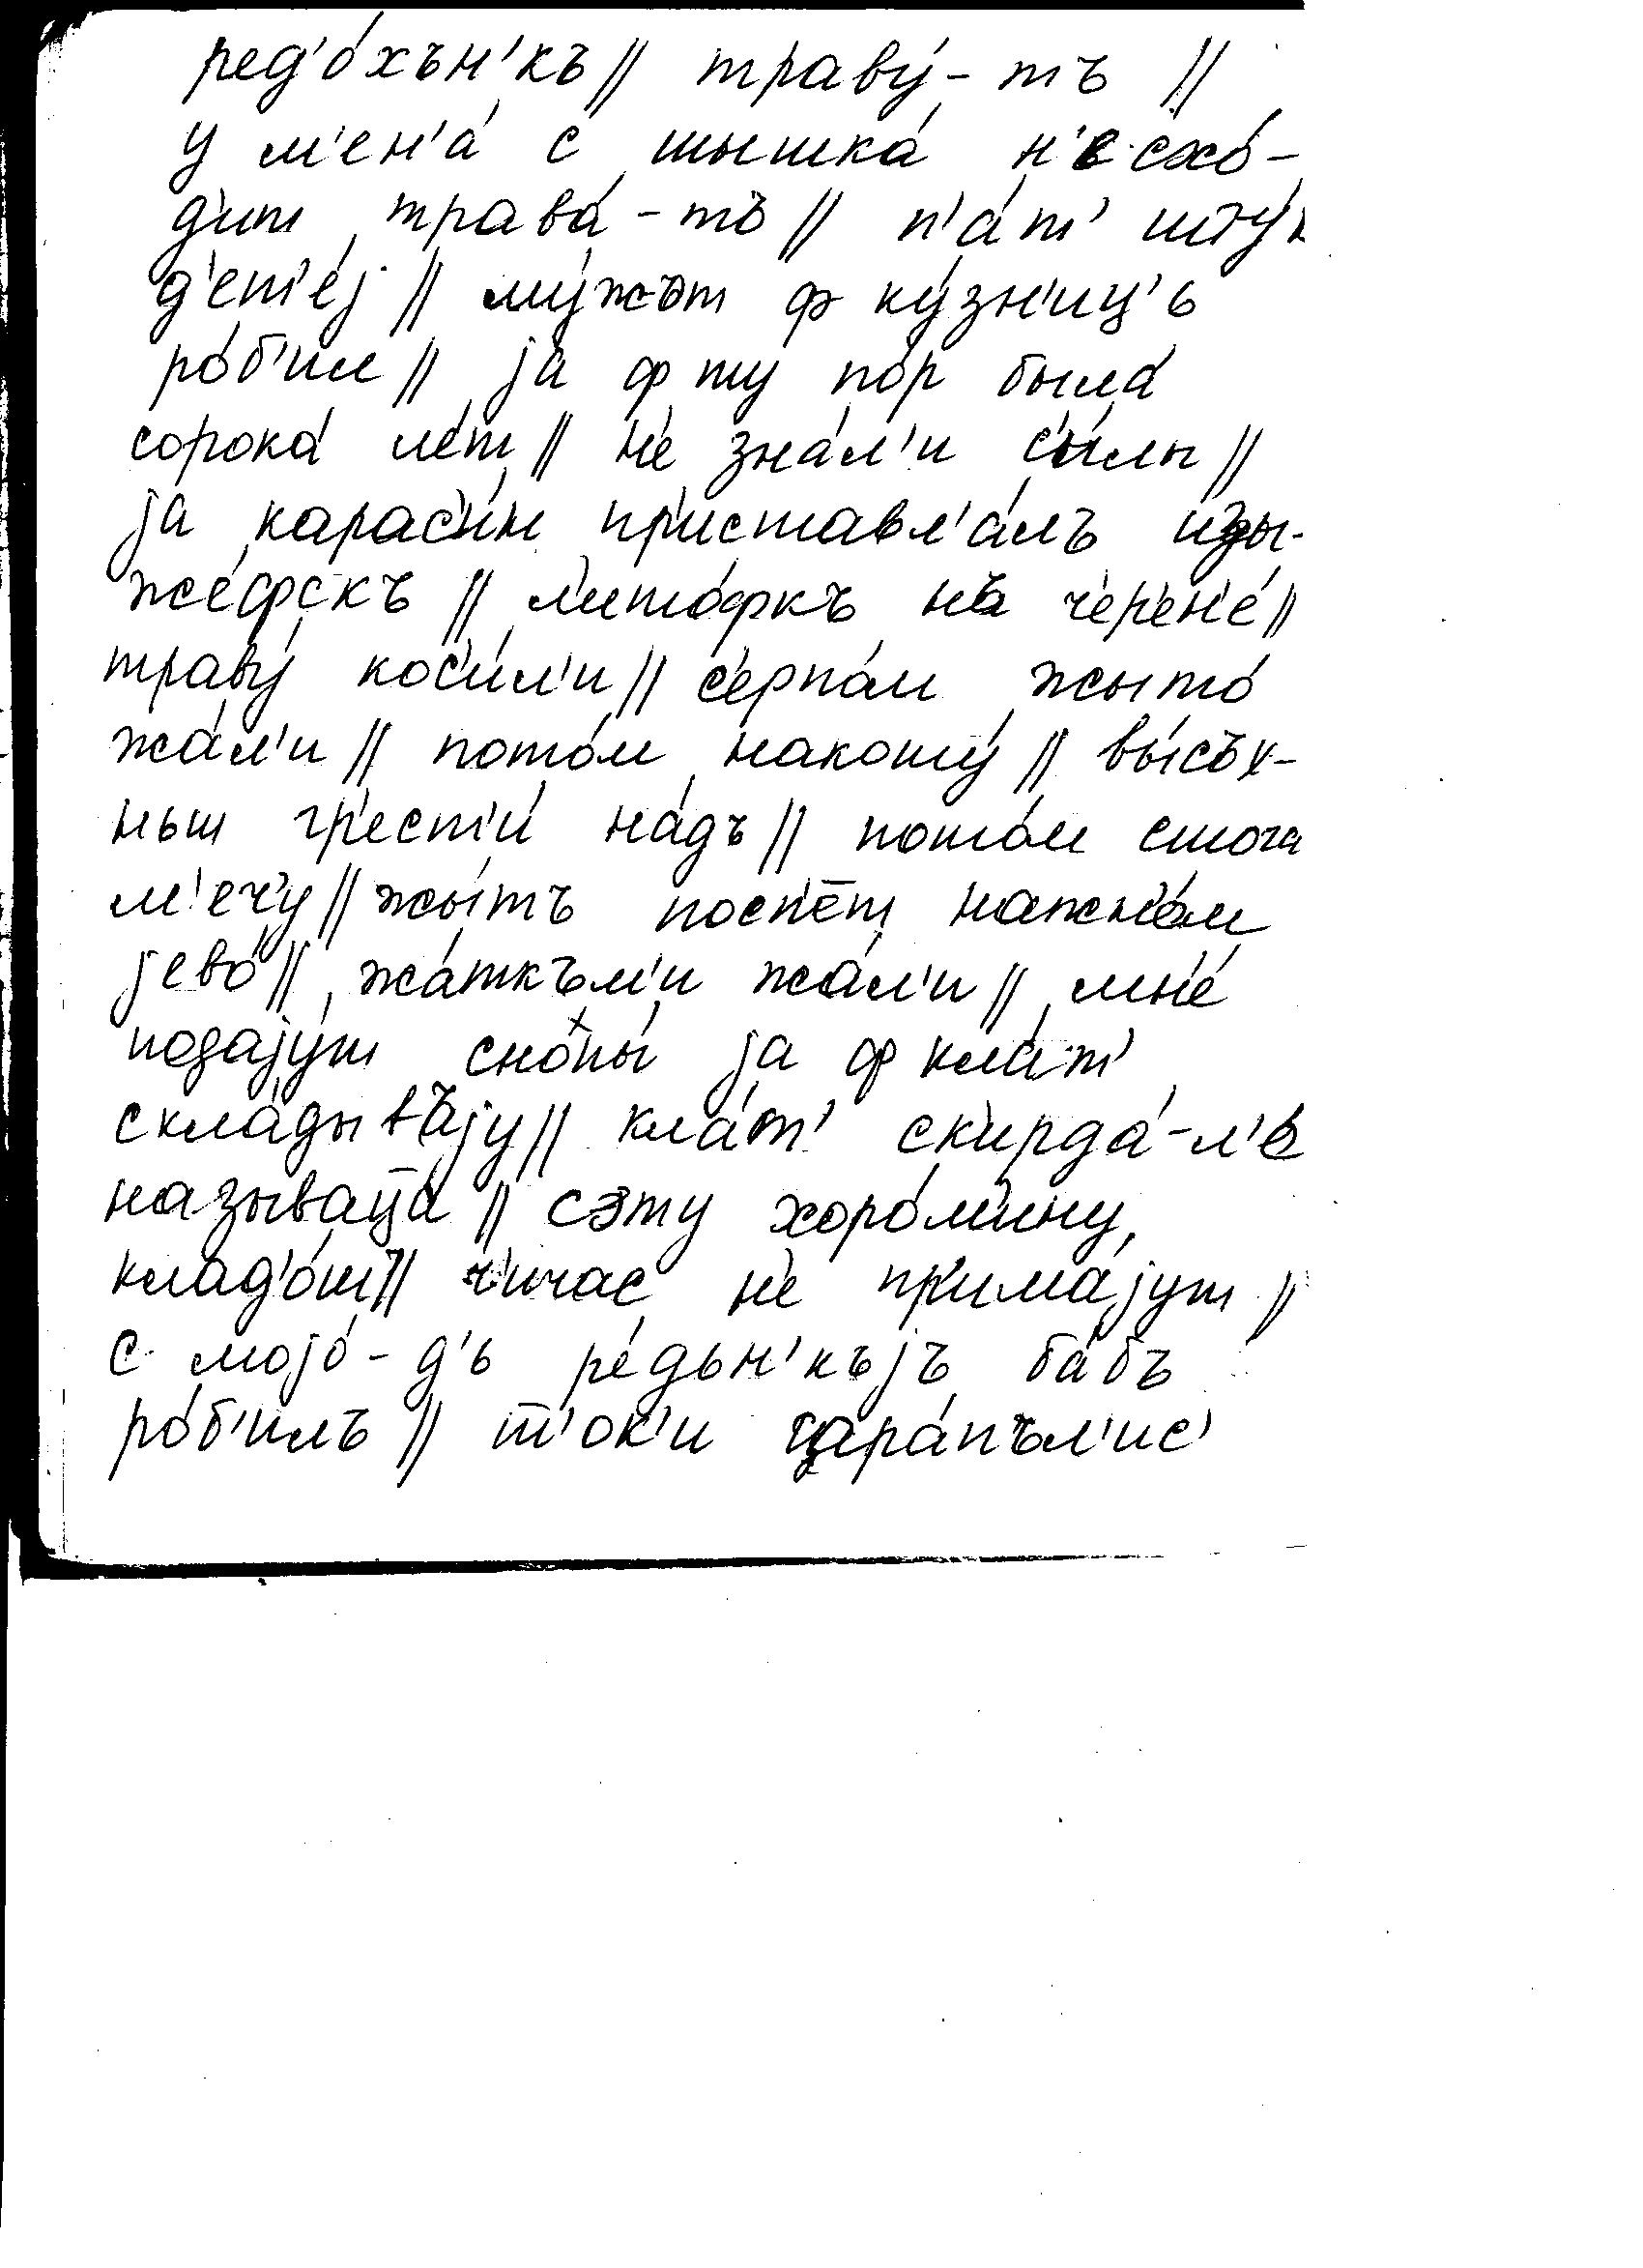 ред'о́хън'къ // траву́-тъ //
у м'ен'а́ с шышка́ н'е схо́-
д'ит трава́-тъ // п'а́т' шту́к
д'ет'е́j // му́жът ф ку́зн'иц'ь
ро́б'ил // jа ф ту по́р была́
сорока́ л'е́т // н'е зна́л'и с'и́лы //
jа карас'и́н пр'иставл'а́лъ изы-
же́фскъ // л'ито́фкъ на ч'ер'ен'е́ //
траву́ кос'и́л'и // с'ерпо́м жыто́
жа́л'и // пото́м накошу́ // вы́съх-
ньш гр'ест'и́ на́дъ // пото́м стога
м'еч'у́ // жы́тъ посп'е̄т нажн'о́м
jево́ // жа́ткъм'и жа́л'и // мн'е́
подаjу́т снопы́ jа ф кла́т'
скла́дывъjу // кла́т' ск'ирда́-л'е
называца // сэту хоро́м'ину
клад'о́ш // ч'ичас н'е пр'има́jут //
с мојо́-д'ь ре́дьн'къjъ ба́бъ
ро́б'илъ // т'ок'и цара́пъл'ис'